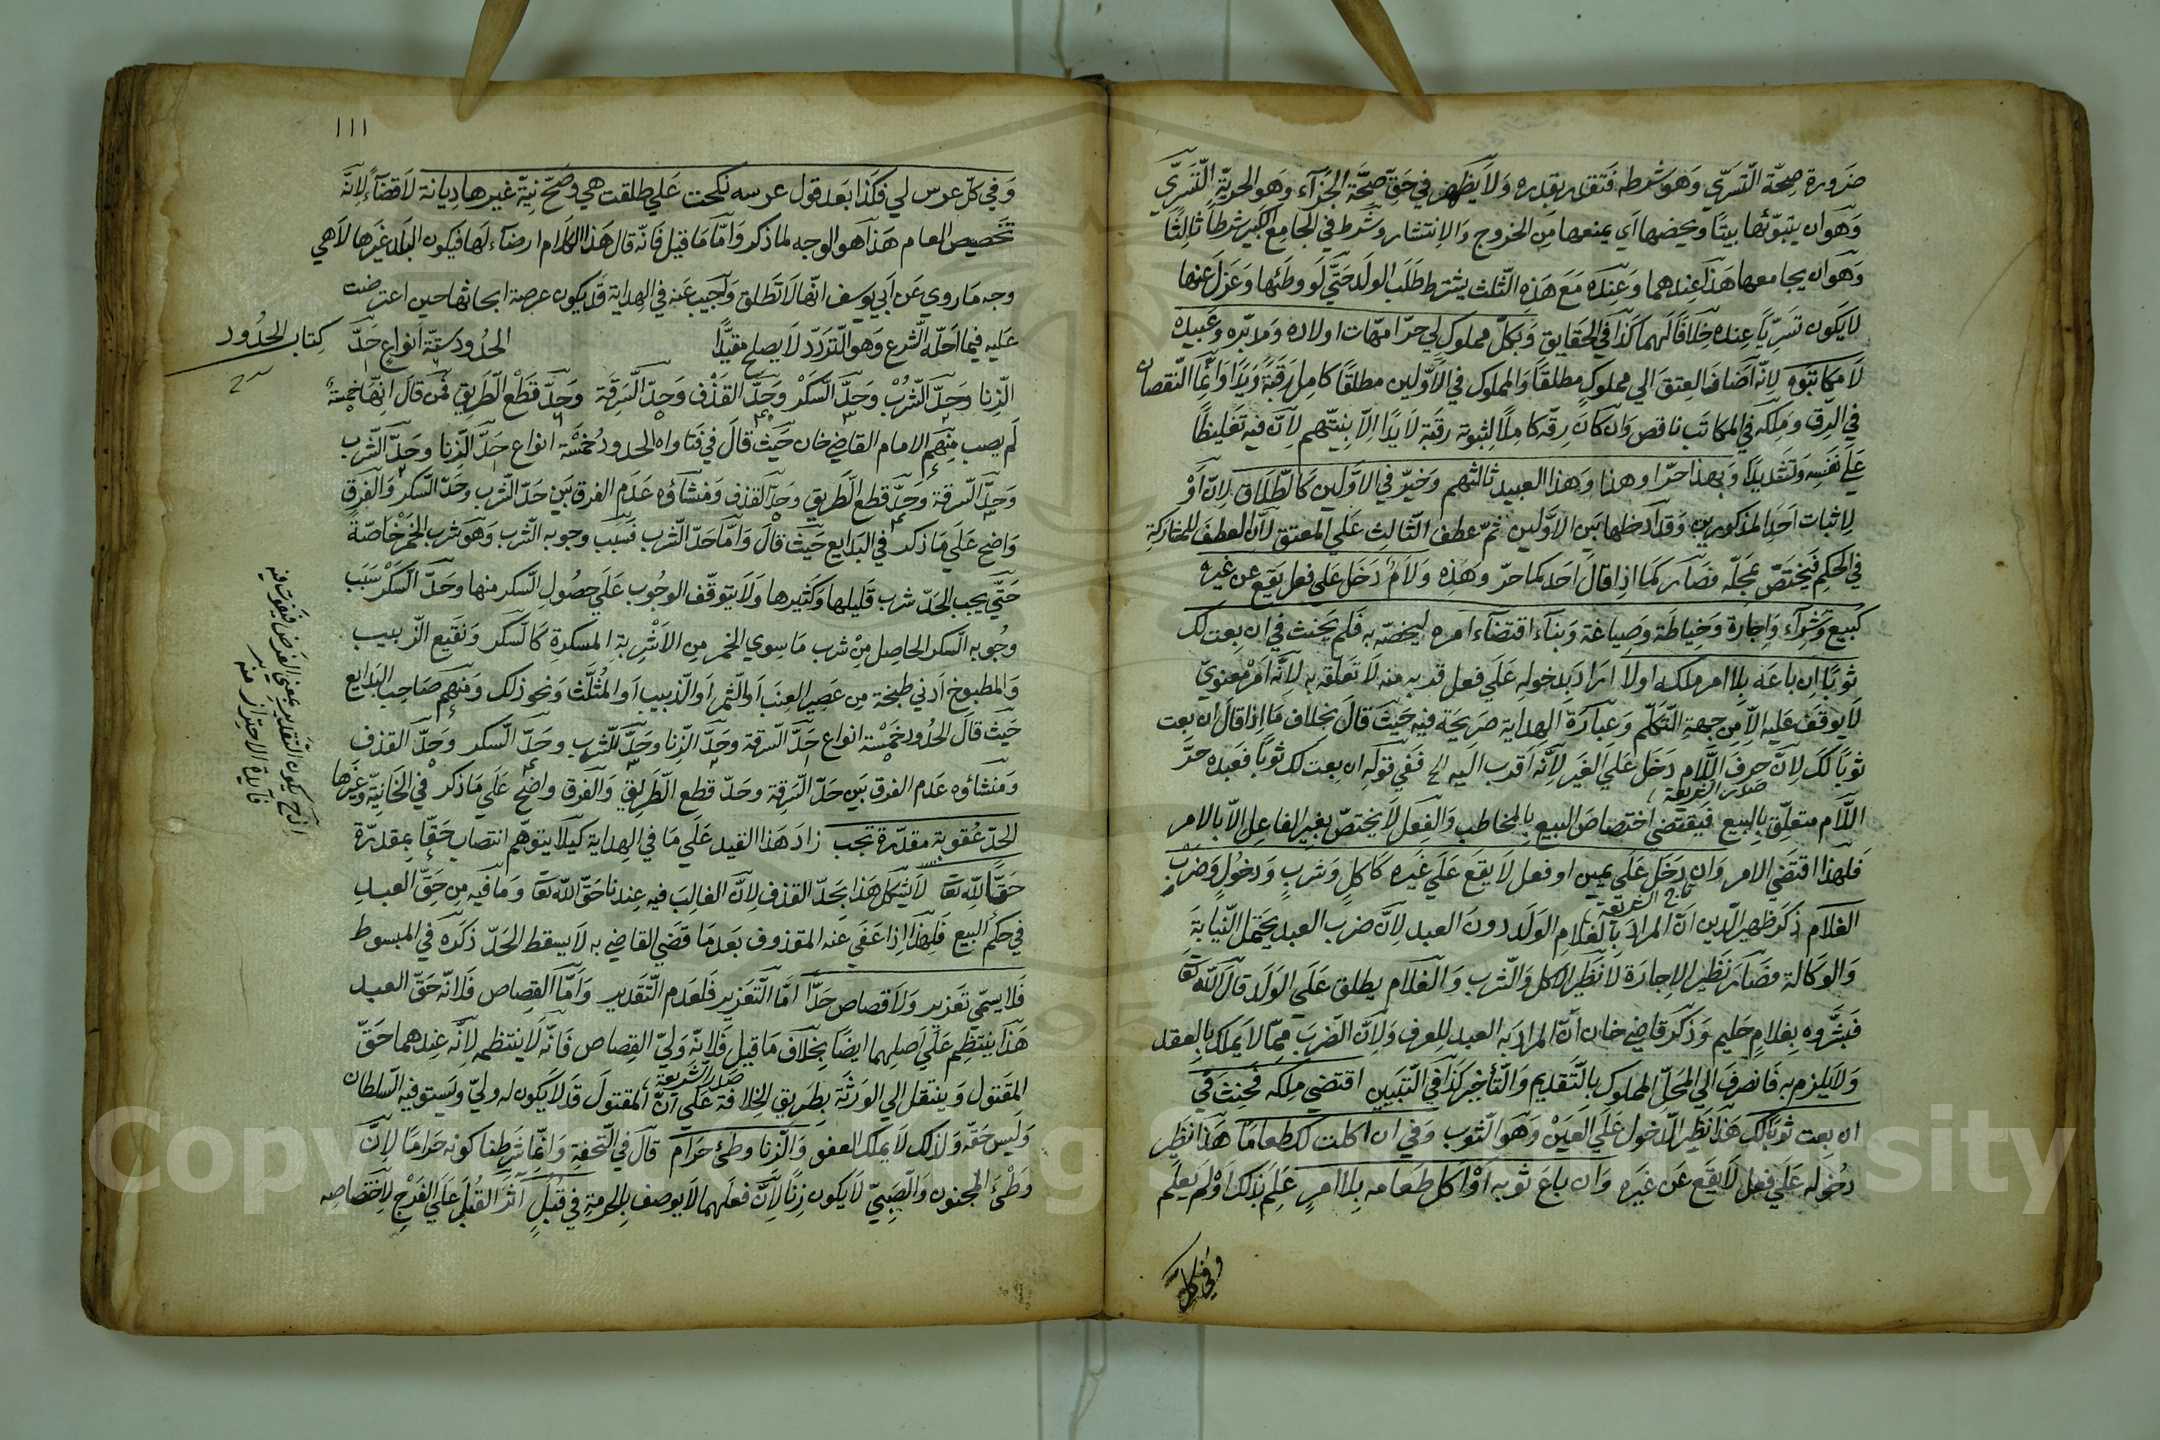 ضرورة صحّة التسرّي وهو شرطه فتقدر بقدره ولا يظهر في حقّ صحّة الجزاء وهو الحريّة التسرّي
وهو ان يبوّئها بيتًا ويحضها اي يمنعها من الخروج والانتشار وشرط في الجامع الكبير شرطًا ثالثًا
وهو ان يجامعها هذا عندهما وعنده مع هذه الثلث يشترط طلب الولد حتّي لو وطئها وعزل عنها
لا يكون تسرّيًا عنده خلافًا لهما كذا في الحقايق وبكلّ مملوك لي حرّ امهات اولاده ومدبّره وعبيده
لا مكاتبوه لانّه اضاف العتق الي مملوك مطلقًا والمملوك في الاوّلين مطلقًا كامل رقبةً ويدًا وانّما النقصان
في الرّق وملكه في المكاتب ناقص وان كان رقّه كاملًا لثبوته رقبة لا يدًا الّا بنيّتهم لانّ فيه تغليظًا
علي نفسه وتشديدًا وبهذا حرّ او هذا وهذا العبيد ثالثهم وخيّر في الاوّلين كالطّلاق لانّ أو
لاثبات احد المذكورين وقد ادخلها بين الاوّلين ثمّ عطف الثالث علي المعتق لانّ العطف للمشاركة
في الحكم فيختصّ بمحلّه فصار كما اذا قال احدكما حرّ وهذه ولام دخل علي فعل يقع عن غيره
كبيع وشراء واجارة وخياطة وصياغة وبناء اقتضاء امره ليخصّه به فلم يحنث في ان بعت لك
ثوبًا ان باعه بلا امر ملكه اولا اراد بدخوله علي فعل قربه منه لا تعلّقه به لانّه امر معنويّ
لا يوقف عليه الّا من جهة التكلّم وعبارة الهداية صريحة فيه حيث قال بخلاف ما اذا قال ان بعت
ثوبًا لك لانّ حرف اللّام دخل علي الغير لانّه اقرب اليه الخ ففي قوله ان بعت لك ثوبًا فعبده حرّ
صدر الشريعة
اللّام متعلّق بالبيع فيقتضي اختصاص البيع بالمخاطب والفعل لا يختصّ بغير الفاعل الّا بالامر
فلهذا اقتضي الامر وان دخل علي عين او فعل لا يقع علي غيره كاكل وشرب ودخول وضرب
تاج الشريعة
الغلام ذكر ظهير الدين انّ المراد بالغلام الولد دون العبد لانّ ضرب العبد يحتمل النّيابة
والوكالة فصار نظير الاجارة لا نظير الاكل والشرب والغلام يطلق علي الولد قال الله تعا
فبشّروه بغلام حليم وذكر قاضي خان انّ المراد به العبد للعرف ولانّ الضرب ممّا لا يملك بالعقد
ولا يلزم به فانصرف الي المحلّ المملوك بالتقديم والتأخير كذا في التبيين اقتضي ملكه فحنث في
ان بعت ثوبًا لك هذا نظير الدخول علي العين وهو الثوب وفي ان اكلت لك طعامًا هذا نظير
دخوله علي فعل لا يقع عن غيره وان باع ثوبه أو اكل طعامه بلا امر علم بذلك أو لم يعلم
وفي كلّ
١١١
وفي كلّ عرس لي فكذا بعد قول عرسه نكحت علي طلقت هي وصحّ نيّة غيرها ديانة لا قضاء لانّه
تخصيص العام هذا هو الوجه لما ذكر وامّا ما قيل فانّه قال هذا الكلام ارضاء لها فيكون المراد غيرها لا هي
وجه ما روي عن ابي يوسف انّها لا تطلق واجيب عنه في الهداية قد يكون غرضه ايحاشها حين اعترضت
عليه فيما احلّه الشرع وهو التردّد لا يصلح مقيّدًا
كتاب الحدود
الحدود ستّة انواع حدّ
الزنا وحدّ الشّرب وحدّ السكر وحدّ القذف وحدّ السرقة وحدّ قطع الطريق فمن قال انّها خمسة
لم يصب منهم الامام القاضي خان حيث قال في فتاواه الحدود خمسة انواع حدّ الزنا وحدّ الشرب
وحدّ السرقة وحدّ قطع الطريق وحدّ القذف ومنشاؤه عدم الفرق بين حدّ الشرب وحدّ السكر والفرق
واضح علي ما ذكر في البدايع حيث قال وامّا حدّ الشرب فسبب وجوبه الشرب وهو شرب الخمر خاصّة
حتّي يجب الحدّ بشرب قليلها وكثيرها ولا يتوقّف الوجوب علي حصول السكر منها وحدّ السكر سبب
وجوبه السكر الحاصل من شرب ما سوي الخمر من الاشربة المسكرة كالسكر ونقيع الزبيب
والمطبوخ ادني طبخة من عصير العنب أو التمر أو الزبيب أو المثلّث ونحو ذلك ومنهم صاحب البدايع
حيث قال الحدود خمسة انواع حدّ السرقة وحدّ الزنا وحدّ الشرب وحدّ السكر وحدّ القذف
ومنشاؤه عدم الفرق بين حدّ السرقة وحدّ قطع الطريق والفرق واضح علي ما ذكر في الخانيّة وغيرها
الحدّ عقوبة مقدّرة تجب زاد هذا القيد علي ما في الهداية كيلا يتوهّم انتصاب حقًّا بمقدّرة
حقًّا لله تعا لا يشكل هذا بحدّ القذف لانّ الغالب فيه عندنا حقّ الله تعا وما فيه من حقّ العبد
في حكم البيع فلهذا اذا عفي عنه المقذوف بعد ما قضي القاضي به لا يسقط الحدّ ذكره في المبسوط
فلا يسمّي تعزير ولا قصاص حدًّا امّا التعزير فلعدم التقدير وأمّا القصاص فلانّه حقّ العبد
هذا ينتظم علي اصلهما ايضًا بخلاف ما قيل فلانّه وليّ القصاص فانّه لا ينتظم لانّه عندهما حقّ
صدر الشريعة
المقتول وينتقل الي الورثة بطريق الخلافة علي انّ المقتول قد لا يكون له وليّ ويستوفيه السلطان
وليس حقّه ولذلك لا يملك العفو والزنا وطئ حرام قال في التحفة وانّما شرطنا كونه حرامًا لانّ
وطئ المجنون والصبيّ لا يكون زنًا لانّ فعلهما لا يوصف بالحرمة في قبل آثر القبل علي الفرج لاختصاصه